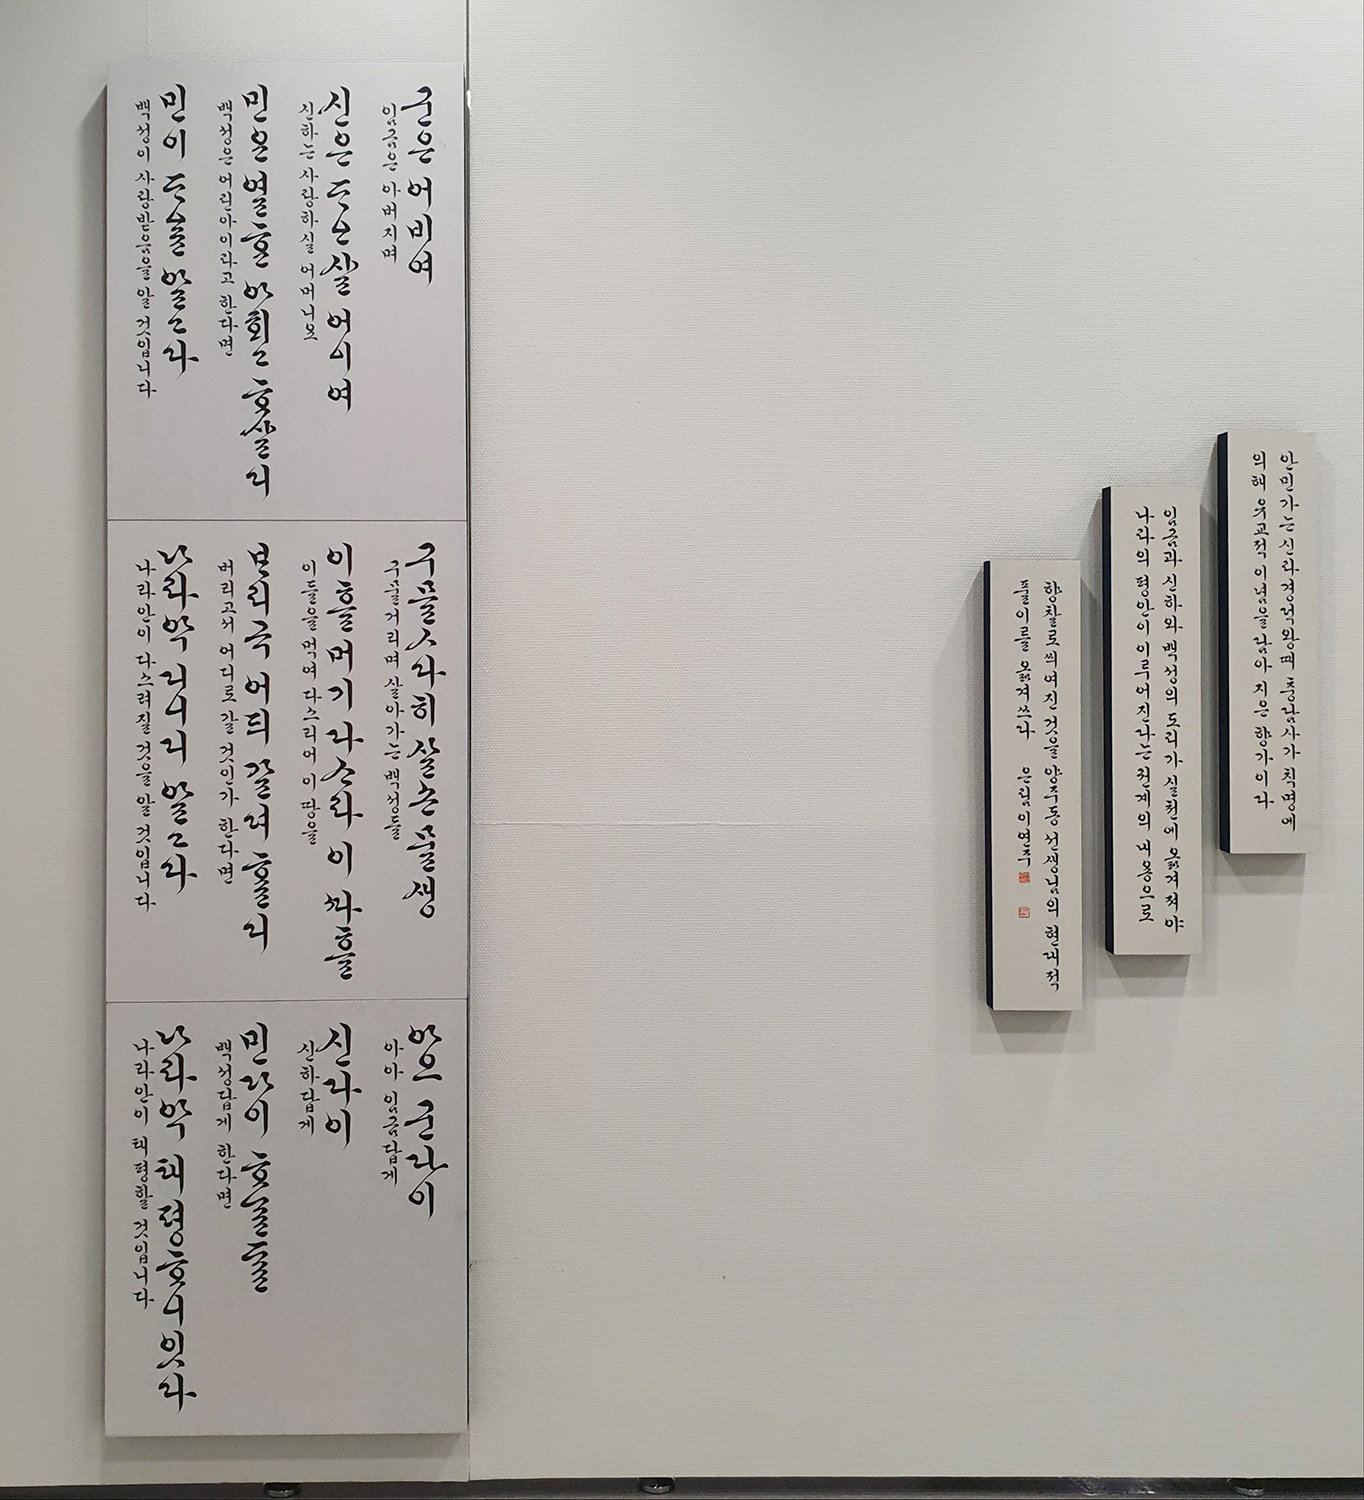 군은 어비여
임금은 아버지며
신은 ᄃᆞᅀᆞ샬 어ᅀᅵ여
신하는 사랑하실 어머니요
민은 얼ᄒᆞᆫ 아ᄒᆡ고 ᄒᆞ샬디
백성은 어린아이라고 한다면
민이 ᄃᆞᅀᆞᆯ 알고다
백성이 사랑받음을 알 것입니다
구믈ㅅ다히 살손 믈생
구물거리며 살아가는 백성들
이흘 머기 다ᄉᆞ라 이 ᄯᅡ흘
이들을 먹여 다스리어 이 땅을
ᄇᆞ리곡 어듸 갈뎌 ᄒᆞᆯ디
버리고서 어디로 갈 것인가 한다면
나라악 디니디 알고다
나라안이 다스려질 것을 알 것입니다
아으 군다이
아아 임금답게
신다이
신하답게
민다이 ᄒᆞᄂᆞᆯᄃᆞᆫ
백성답게 한다면
나라악 태평ᄒᆞ니잇다
나라안이 태평할 것입니다
안민가는 신라경덕왕때 충담사가 칙명에
의해 유교적 이념을 담아 지은 향가이다
임금과 신하와 백성의 도리가 실천에 옮겨져야
나라의 평안이 이루어진다는 전계의 내용으로
향찰로 씌여진 것을 양주동 선생님의 현대적
풀이를 옮겨쓰다 은림 이연주